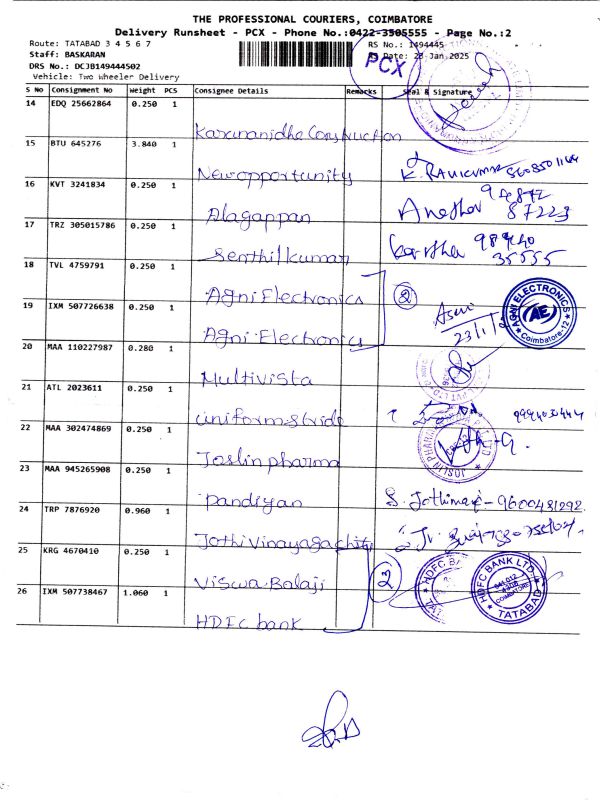 THE PROFESSIONAL COURIERS, COIMBATORE
Delivery Runsheet - PCX - Phone No.:0422-3505555 - Page No.:2
Route: TATABAD 3 4 5 6 7
RS No.: 1494445
Staff: BASKARAN
RS Date: 23-Jan.2025
DRS No.: DCJB149444502
Vehicle: Two Wheeler Delivery
PCX
S No Consignment No Weight PCS Consignee Details Remarks Seal & Signature
14 EDQ 25662864 0.250 1
Karunanidhe Construction
15 BTU 645276 3.840 1
Newopportunity K. RAVIKUMAR
16 KVT 3241834 0.250 1
Alagappan 87223
17 TRZ 305015786 0.250 1
Senthil kumar 35555
18 TVL 4759791 0.250 1
Agni Electronics 2
19 IXM 507726638 0.250 1
Agni Electronics
AGNI ELECTRONICS AE Coimbatore-12
20 MAA 110227987 0.280 1
Multivista
21 ATL 2023611 0.250 1
uniformstride
22 MAA 302474869 0.250 1
Joslin pharma
JOSLIN PHARMA
23 MAA 945265908 0.250 1
pandiyan S. Jothimani - 9600481292
24 TRP 7876920 0.960 1
Jothi Vinayaga chits
25 KRG 4670410 0.250 1
Viswa Balaji 2
26 IXM 507738467 1.060 1
HDFC bank
HDFC BANK LTD COIMBATORE TATABAD